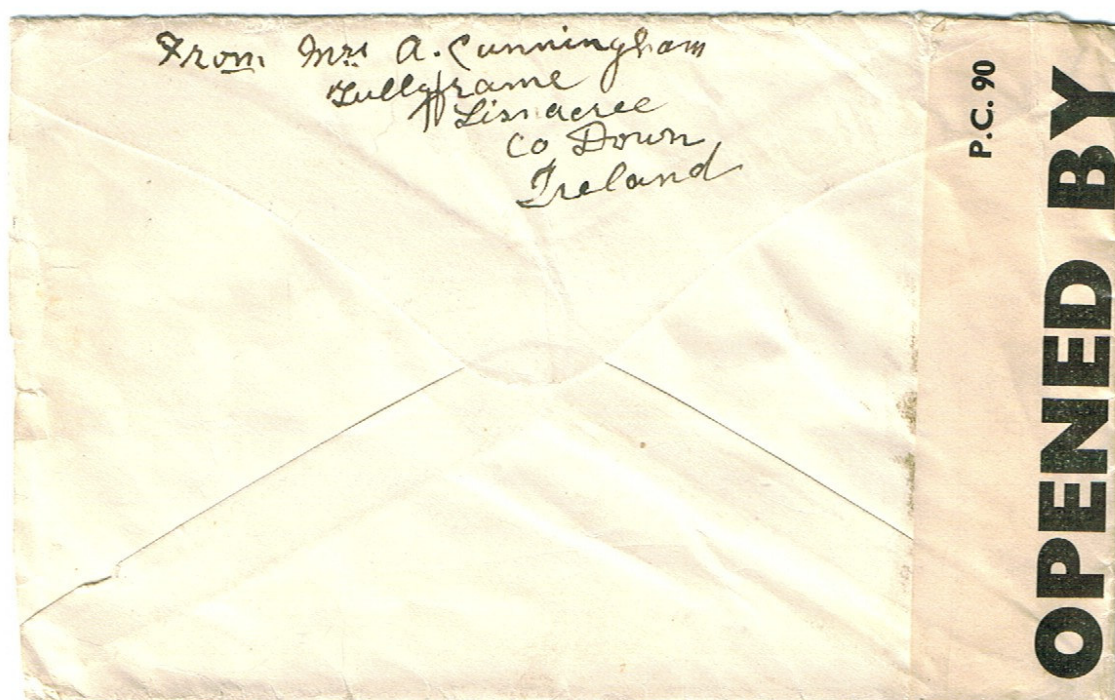 From Mrs A. Cunningham
Tullyframe
Lisnacree
Co Down
Ireland
P.C. 90
OPENED BY